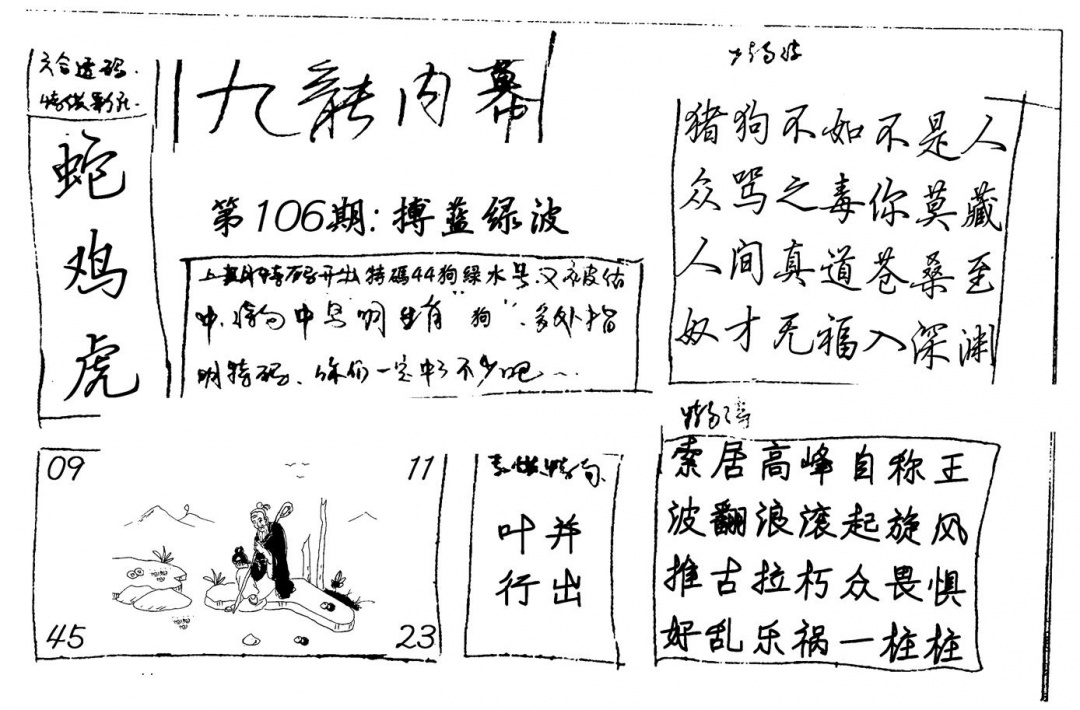 六合透码.
蛇
鸡
虎
九龍内幕
第106期:搏蓝绿波
上期特码开出特碼44狗綠水号,又被估
中,特句中写明生肖"狗",多处指
明特码,你们一定中了不少吧...
猪狗不如不是人
众骂之毒你莫藏
人间真道苍桑至
奴才无福入深渊
索居高峰自称王
波翻浪滚起旋风
推古拉朽众畏惧
好乱乐祸一桩桩
09
11
45
23
叶并
行出